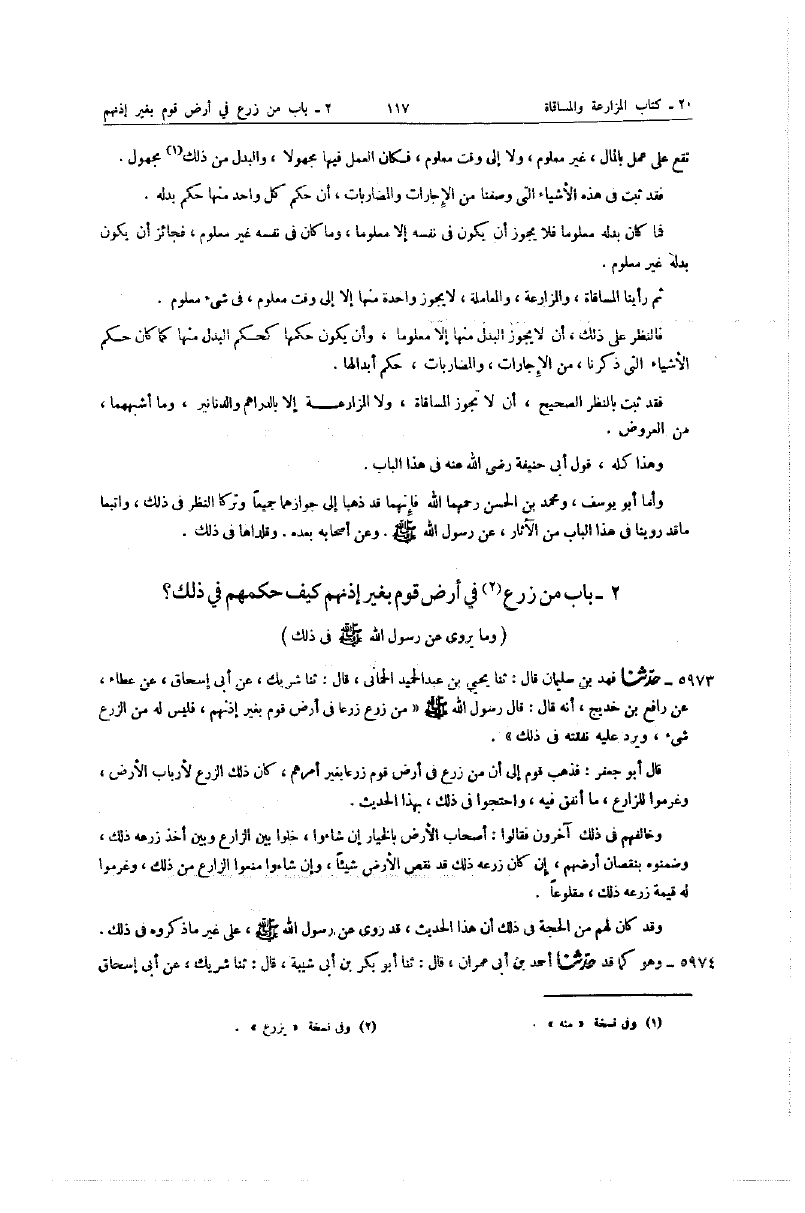 ٢٠ - كتاب المزارعة والمساقاة ١١٧ ٢ - باب من زرع في أرض قوم بغير إذنهم
تقع على عمل بالمال ، غير معلوم ، ولا إلى وقت معلوم ، فكان العمل فيها مجهولا ، والبدل من ذلك(١) مجهول .
فقد ثبت فى هذه الأشياء التى وصفنا من الإجارات والمضاربات ، أن حكم كل واحد منها حكم بدله .
فما كان بدله معلوما فلا يجوز أن يكون فى نفسه إلا معلوما ، وما كان فى نفسه غير معلوم ، فجائز أن يكون
بدله غير معلوم .
ثم رأينا المساقاة ، والمزارعة ، والمعاملة ، لايجوز واحدة منها إلا إلى وقت معلوم ، فى شىء معلوم .
فالنظر على ذلك ، أن لايجوز البدل منها إلا معلوما ، وأن يكون حكمها كحكم البدل منها كما كان حكم
الأشياء التى ذكرنا ، من الإجارات ، والمضاربات ، حكم أبدالها .
فقد ثبت بالنظر الصحيح ، أن لا تجوز المساقاة ، ولا المزارعـــة إلا بالدراهم والدنانير ، وما أشبههما ،
من العروض .
وهذا كله ، قول أبى حنيفة رضى الله عنه فى هذا الباب .
وأما أبو يوسف ، ومحمد بن الحسن رحمهما الله فإنهما قد ذهبا إلى جوازهما جميعاً وتركا النظر فى ذلك ، واتبعا
ماقد روينا فى هذا الباب من الآثار ، عن رسول الله ﷺ . وعن أصحابه بعده . وقلداها فى ذلك .
٢ - باب من زرع(٢) في أرض قوم بغير إذنهم كيف حكمهم في ذلك ؟
( وما يروى عن رسول الله ﷺ فى ذلك )
٥٩٧٣ - حدثنا فهد بن سليمان قال : ثنا يحيي بن عبدالحميد الحمانى ، قال : ثنا شريك ، عن أبى إسحاق ، عن عطاء ،
عن رافع بن خديج ، أنه قال : قال رسول الله ﷺ « من زرع زرعا فى أرض قوم بغير إذنهم ، فليس له من الزرع
شىء ، ويرد عليه نفقته فى ذلك » .
قال أبو جعفر : فذهب قوم إلى أن من زرع فى أرض قوم زرعا بغير أمرهم ، كان ذلك الزرع لأرباب الأرض ،
وغرموا للزارع ، ما أنفق فيه ، واحتجوا فى ذلك ، بهذا الحديث .
وخالفهم فى ذلك آخرون فقالوا : أصحاب الأرض بالخيار إن شاءوا ، خلوا بين الزارع وبين أخذ زرعه ذلك ،
وضمنوه بنقصان أرضهم ، إن كان زرعه ذلك قد نقص الأرض شيئاً ، وإن شاءوا منعوا الزارع من ذلك ، وغرموا
له قيمة زرعه ذلك ، مقلوعاً .
وقد كان لهم من الحجة فى ذلك أن هذا الحديث ، قد روى عن رسول الله ﷺ ، على غير ماذكروه فى ذلك .
٥٩٧٤ - وهو كما قد حدثنا أحمد بن أبى عمران ، قال : ثنا أبو بكر بن أبى شيبة ، قال : ثنا شريك ، عن أبى إسحاق
(١) وفى نسخة « منه » . (٢) وفى نسخة « يزرع » .